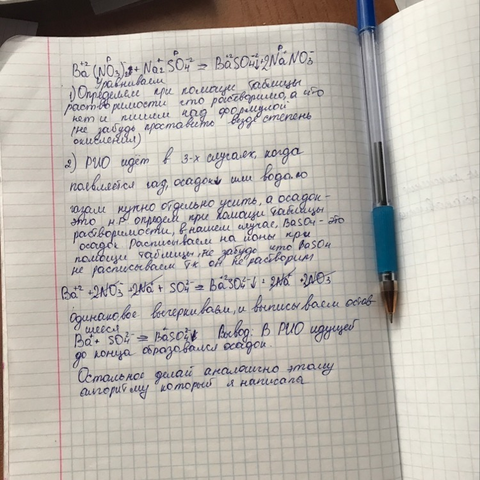 Ba⁺²(NO₃)₂⁻ + Na₂⁺SO₄⁻² = Ba⁺²SO₄⁻²↓ + 2Na⁺NO₃⁻
Уравниваем
1) Определяем при помощи таблицы
растворимости что растворимо, а что
нет и пишем над формулой
(не забудь проставить везде степень
окисления)
2) РИО идет в 3-х случаях, когда
появляется газ, осадок↓ или вода.
газы нужно отдельно учить, а осадок-
это Н опредем при помощи таблицы
растворимости, в нашем случае, BaSO₄ - это
осадок Расписываем на ионы при
помощи таблицы, не забудь что BaSO₄
не расписываем т.к он не растворим
Ba⁺² + 2NO₃⁻ + 2Na⁺ + SO₄⁻² = Ba⁺²SO₄⁻²↓ + 2Na⁺ + 2NO₃⁻
Одинаковое вычеркиваем, и выписываем остав-
шееся
Ba⁺² + SO₄⁻² = Ba⁺²SO₄⁻²↓ Вывод: В РИО идущей
до конца образовался осадок.
Остальное делай аналогично этому
алгоритму который я написала